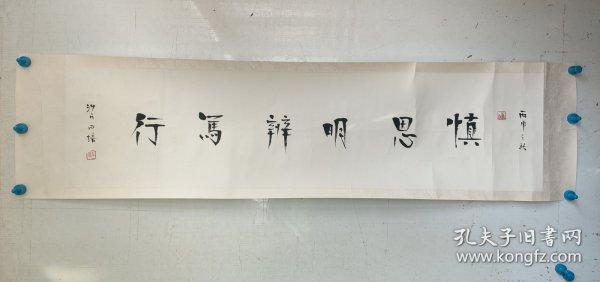 丙申之秋
慎思明辨笃行
孔夫子旧书网
www.kongfz.com